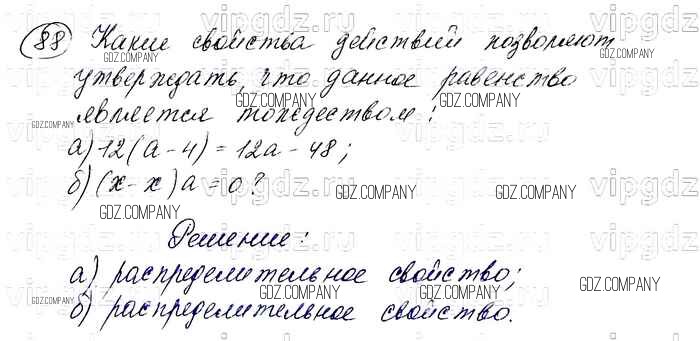 88 Какие свойства действий позволяют
утверждать, что данное равенство
является тождеством:
а) 12(а - 4) = 12а - 48;
б) (х - х)а = 0?
Решение:
а) распределительное свойство;
б) распределительное свойство.
vipgdz.ru
GDZ.COMPANY